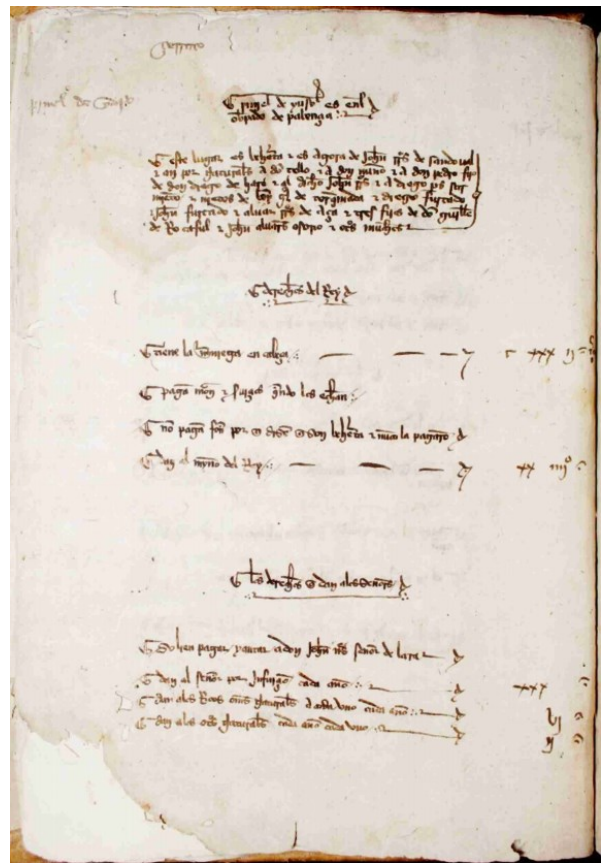 de yuso es enl
obpado de palençia
Este lugar es behetria e es agora de Johan rrs de sandoual
e an por naturales a do tello e a don nuño e a don pedro fijo
de don diego de haro e al dicho Johan rrs e a diego ps sar
miento e nietos de de e diego furtado
Johan furtado e aluar rrs de aça e tres fijos de do guille
de Rocaful e Johan aluares osorio e otros muchos
derechos del Rey
tiene la en cabeça r xxx ij
pagan mon e seruiçios quando los echan
no pagan fos por q dizen q son behetria e nunca la pagaron
dan al meryno del Rey xx iiijº
los derechos q dan alos señores
Solien pagar yantar a don Johan ns señor de lara
dan al señor por Infurçion cada año xxx
dan alos Ricos omes naturales a cada vno cada año vj
dan alos otros naturales cada año cada vno ij